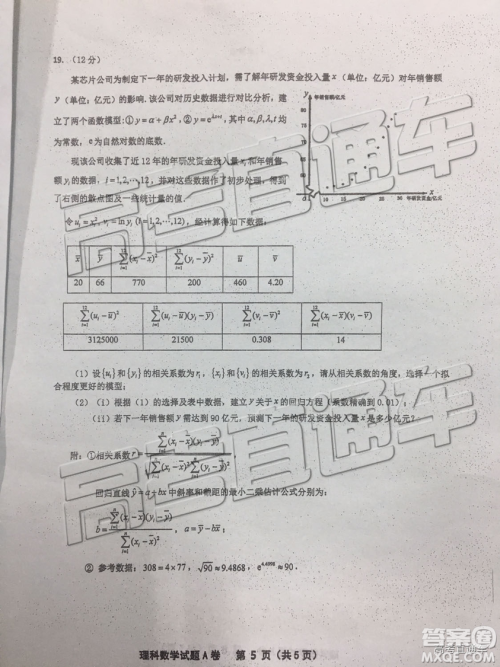 19.（12分）
某芯片公司为制定下一年的研发投入计划，需了解年研发资金投入量 x（单位：亿元）对年销售额
y（单位：亿元）的影响.该公司对历史数据进行对比分析，建
立了两个函数模型:① y=α+βx²，② y=e^{λx+t}，其中 α,β,λ,t 均
为常数，e为自然对数的底数.
现该公司收集了近12年的年研发资金投入量 xᵢ 和年销售
额 yᵢ 的数据，i=1,2,⋯,12，并对这些数据作了初步处理，得到
了右侧的散点图及一些统计量的值.
令 uᵢ=xᵢ²，vᵢ=ln yᵢ (i=1,2,⋯,12)，经计算得如下数据：
y 年销售额/亿元
80
75
70
65
60
0 10 15 20 25 30 x
年研发资金/亿元
x̄ ȳ ∑_{i=1}^{12}(xᵢ-x̄)² ∑_{i=1}^{12}(yᵢ-ȳ)² ū v̄
20 66 770 200 460 4.20
∑_{i=1}^{12}(uᵢ-ū)² ∑_{i=1}^{12}(uᵢ-ū)(yᵢ-ȳ) ∑_{i=1}^{12}(vᵢ-v̄)² ∑_{i=1}^{12}(xᵢ-x̄)(vᵢ-v̄)
3125000 21500 0.308 14
（1）设{uᵢ}和{yᵢ}的相关系数为 r₁，{xᵢ}和{vᵢ}的相关系数为 r₂，请从相关系数的角度，选择一个拟
合程度更好的模型；
（2）（i）根据（1）的选择及表中数据，建立 y 关于 x 的回归方程（系数精确到0.01）；
（ii）若下一年销售额 y 需达到90亿元，预测下一年的研发资金投入量 x 是多少亿元？
附：①相关系数 r=∑_{i=1}^{n}(xᵢ-x̄)(yᵢ-ȳ)/√(∑_{i=1}^{n}(xᵢ-x̄)²∑_{i=1}^{n}(yᵢ-ȳ)²)，
回归直线 ŷ=a+bx 中斜率和截距的最小二乘估计公式分别为：
b=∑_{i=1}^{n}(xᵢ-x̄)(yᵢ-ȳ)/∑_{i=1}^{n}(xᵢ-x̄)²，a=ȳ-bx̄；
② 参考数据：308=4×77，√90≈9.4868，e^{4.4998}≈90.
理科数学试题A卷 第5页（共6页）
高考直通车
高考直通车
高考直通车
答案圈